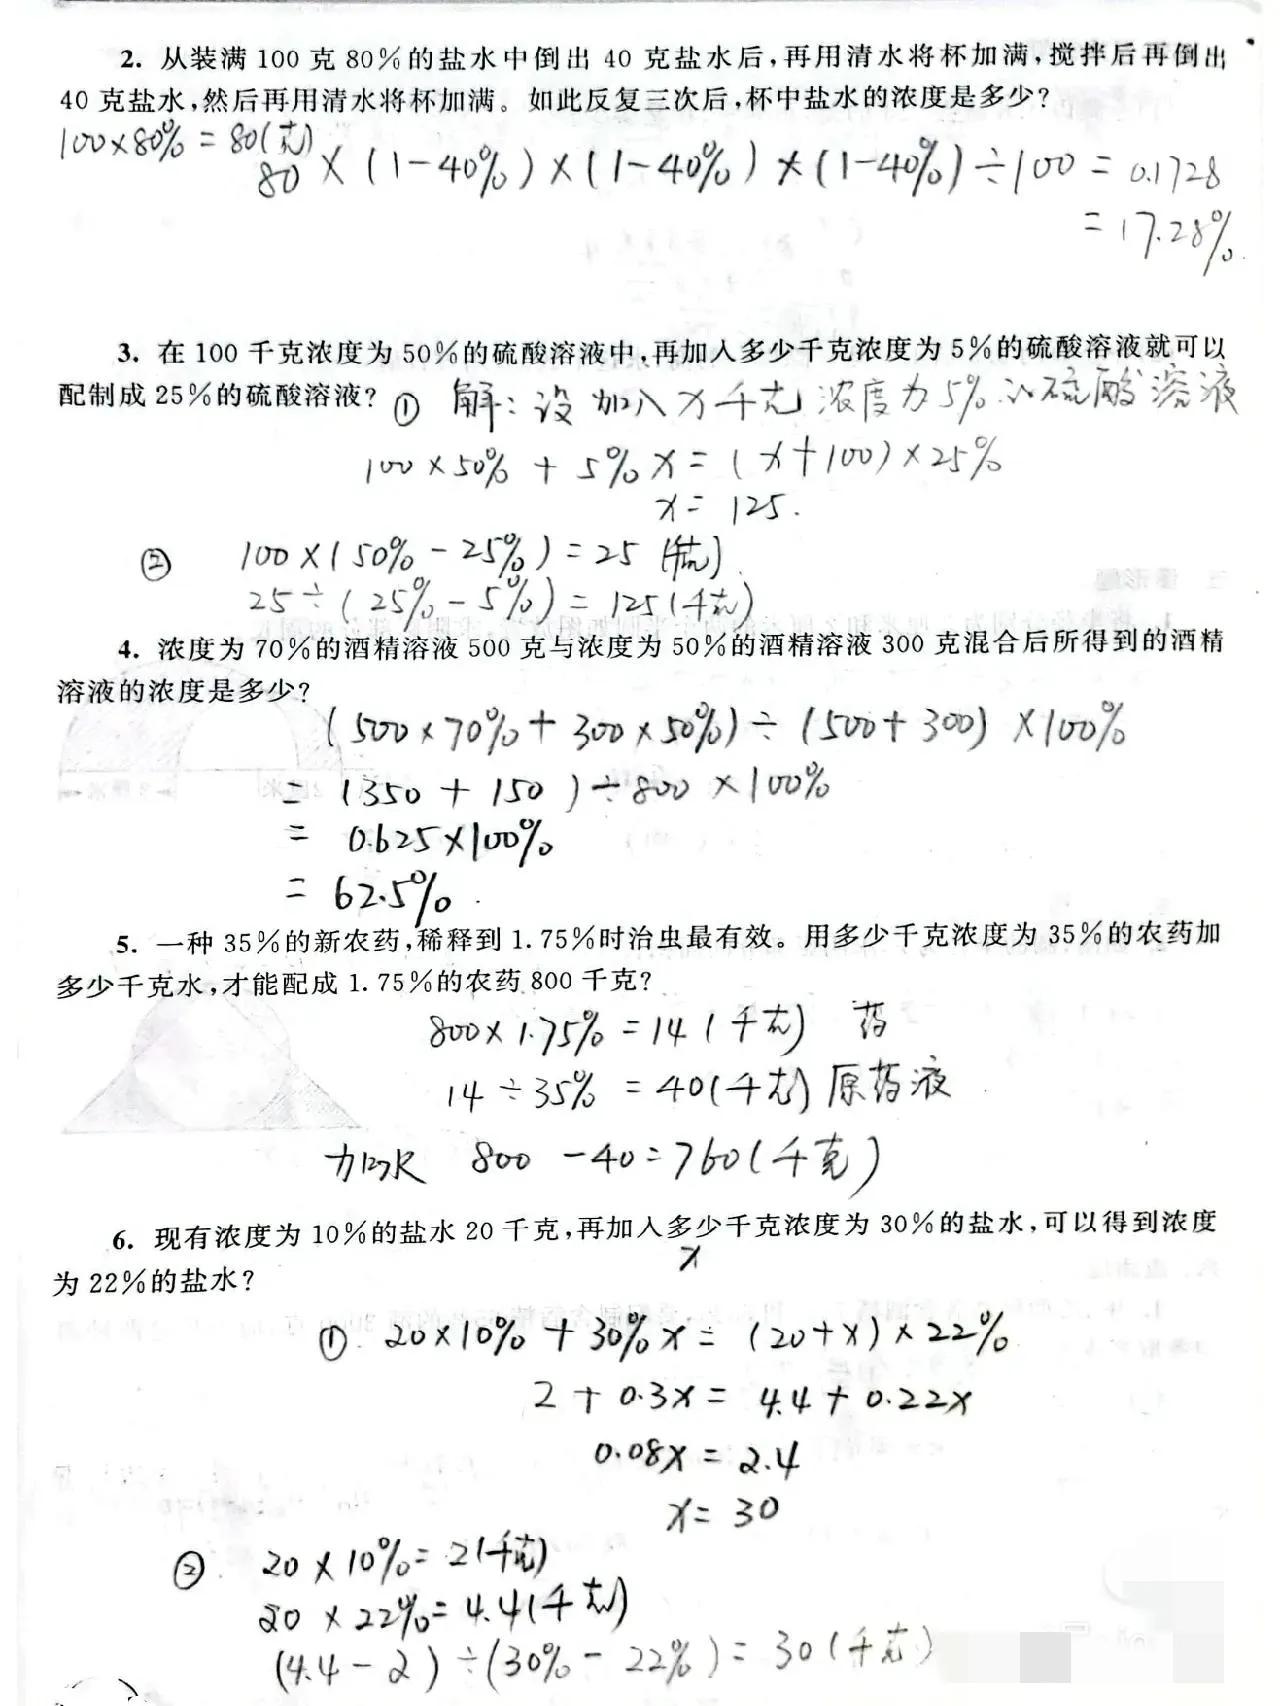 2. 从装满100克80%的盐水中倒出40克盐水后,再用清水将杯加满,搅拌后再倒出
40克盐水,然后再用清水将杯加满。如此反复三次后,杯中盐水的浓度是多少?
100×80%=80(克)
80×(1-40%)×(1-40%)×(1-40%)÷100=0.1728
=17.28%.
3. 在100千克浓度为50%的硫酸溶液中,再加入多少千克浓度为5%的硫酸溶液就可以
配制成25%的硫酸溶液?
① 解:设加入x千克浓度为5%的硫酸溶液
100×50%+5%x=(x+100)×25%
x=125.
② 100×(50%-25%)=25(千克)
25÷(25%-5%)=125(千克)
4. 浓度为70%的酒精溶液500克与浓度为50%的酒精溶液300克混合后所得到的酒精
溶液的浓度是多少?
(500×70%+300×50%)÷(500+300)×100%
=(350+150)÷800×100%
=0.625×100%
=62.5%.
5. 一种35%的新农药,稀释到1.75%时治虫最有效。用多少千克浓度为35%的农药加
多少千克水,才能配成1.75%的农药800千克?
800×1.75%=14(千克) 药
14÷35%=40(千克)原药液
加水 800-40=760(千克)
6. 现有浓度为10%的盐水20千克,再加入多少千克浓度为30%的盐水,可以得到浓度
x
为22%的盐水?
① 20×10%+30%x=(20+x)×22%
2+0.3x=4.4+0.22x
0.08x=2.4
x=30
② 20×10%=2(千克)
20×22%=4.4(千克)
(4.4-2)÷(30%-22%)=30(千克)